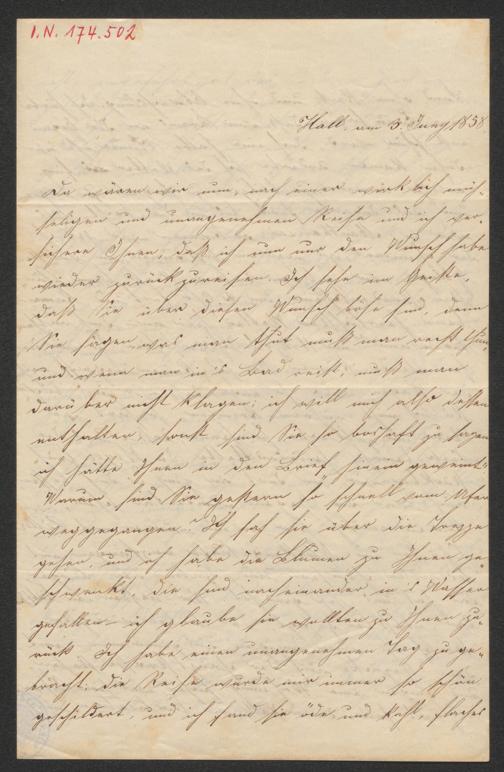 I.N. 174.502
Hall, am 3. Juny 1858
Da wären wir nun, nach einer wirklich müh-
seligen und unangenehmen Reise und ich ver-
sichere Ihnen, daß ich nun nur den Wunsch habe
wieder zurückzureisen. Ich sehe im Geiste,
daß Sie über diesen Wunsch böse sind, denn
Sie sagen was man thut muß man recht thun,
und wenn man in's Bad reist, muß man
darüber nicht klagen; ich will mich also dessen
enthalten, sonst sind Sie so boshaft zu sagen
ich hätte Ihnen in den Brief hinein geweint.
Warum sind Sie gestern so schnell vom Ufer
weggegangen? Ich sah sie über die Treppe
gehen, und ich habe die Blumen zu Ihnen ge-
schwenkt, die sind nacheinander in's Wasser
gefallen – ich glaube sie wollten zu Ihnen zu-
rück. Ich habe einen unangenehmen Tag zu ge-
bracht; die Reise wurde mir immer so schön
geschildert, und ich fand sie öde und kahl, flaches